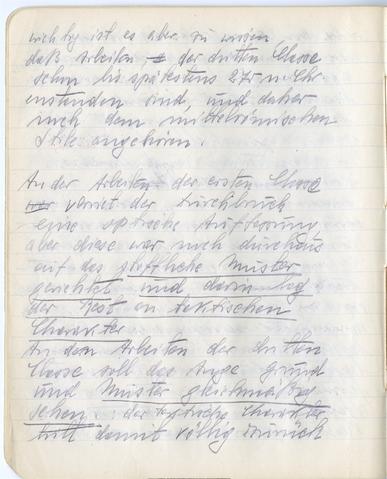 wichtig ist es aber zu wissen
daß Arbeiten der dritten Classe
schon bis spätestens 275 n. Chr.
enstanden sind, und daher
noch dem mittelrömischen
Stile angehören.
An der Arbeiten der ersten Classe
verriet der Durchbruch
eine optische Auffassung,
aber diese war noch durchaus
auf das stoffliche Muster
gerichtet und darin lag
der Rest an taktischen
Charakter
An den Arbeiten der dritten
Classe soll das Auge grund
und Muster gleichmäßig
sehen: der taktische Charakter
tritt damit völlig zurück